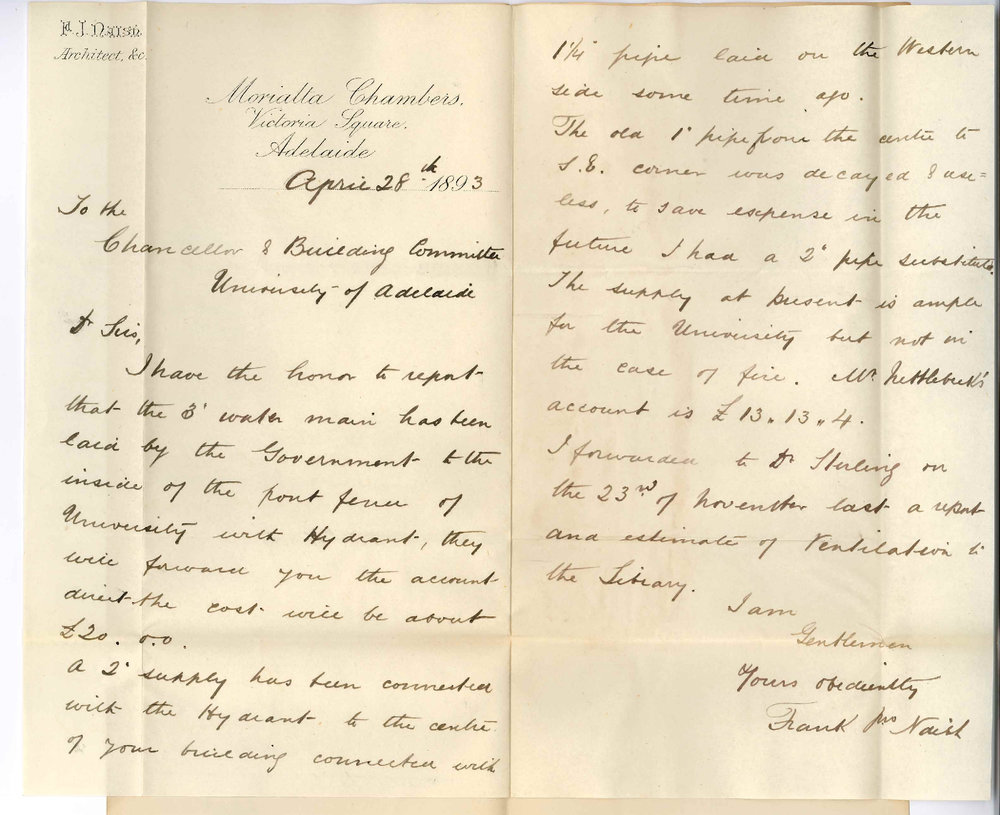 F. J. Naish
Architect, &c.
Morialta Chambers,
Victoria Square,
Adelaide
April 28th 1893
To the
Chancellor & Building Committee
University of Adelaide
Dr Sirs,
I have the honor to report
that the 3" water main has been
laid by the Government to the
inside of the front fence of
University with Hydrant, they
will forward you the account
direct the cost will be about
£20. 0.0.
A 2" supply has been connected
with the Hydrant to the centre
of your building connected with
1¼" pipe laid on the Western
side some time ago.
The old 1" pipe from the centre to
S.E. corner was decayed & use=
less, to save expense in the
future I had a 2" pipe substituted
The supply at present is ample
for the University but not in
the case of fire. Mr Nettlebeck's
account is £13.13.4.
I forwarded to Dr Sterling on
the 23rd of November last a report
and estimate of Ventilation to
the Library.
I am
Gentlemen
Yours obediently
Frank Jno Naish